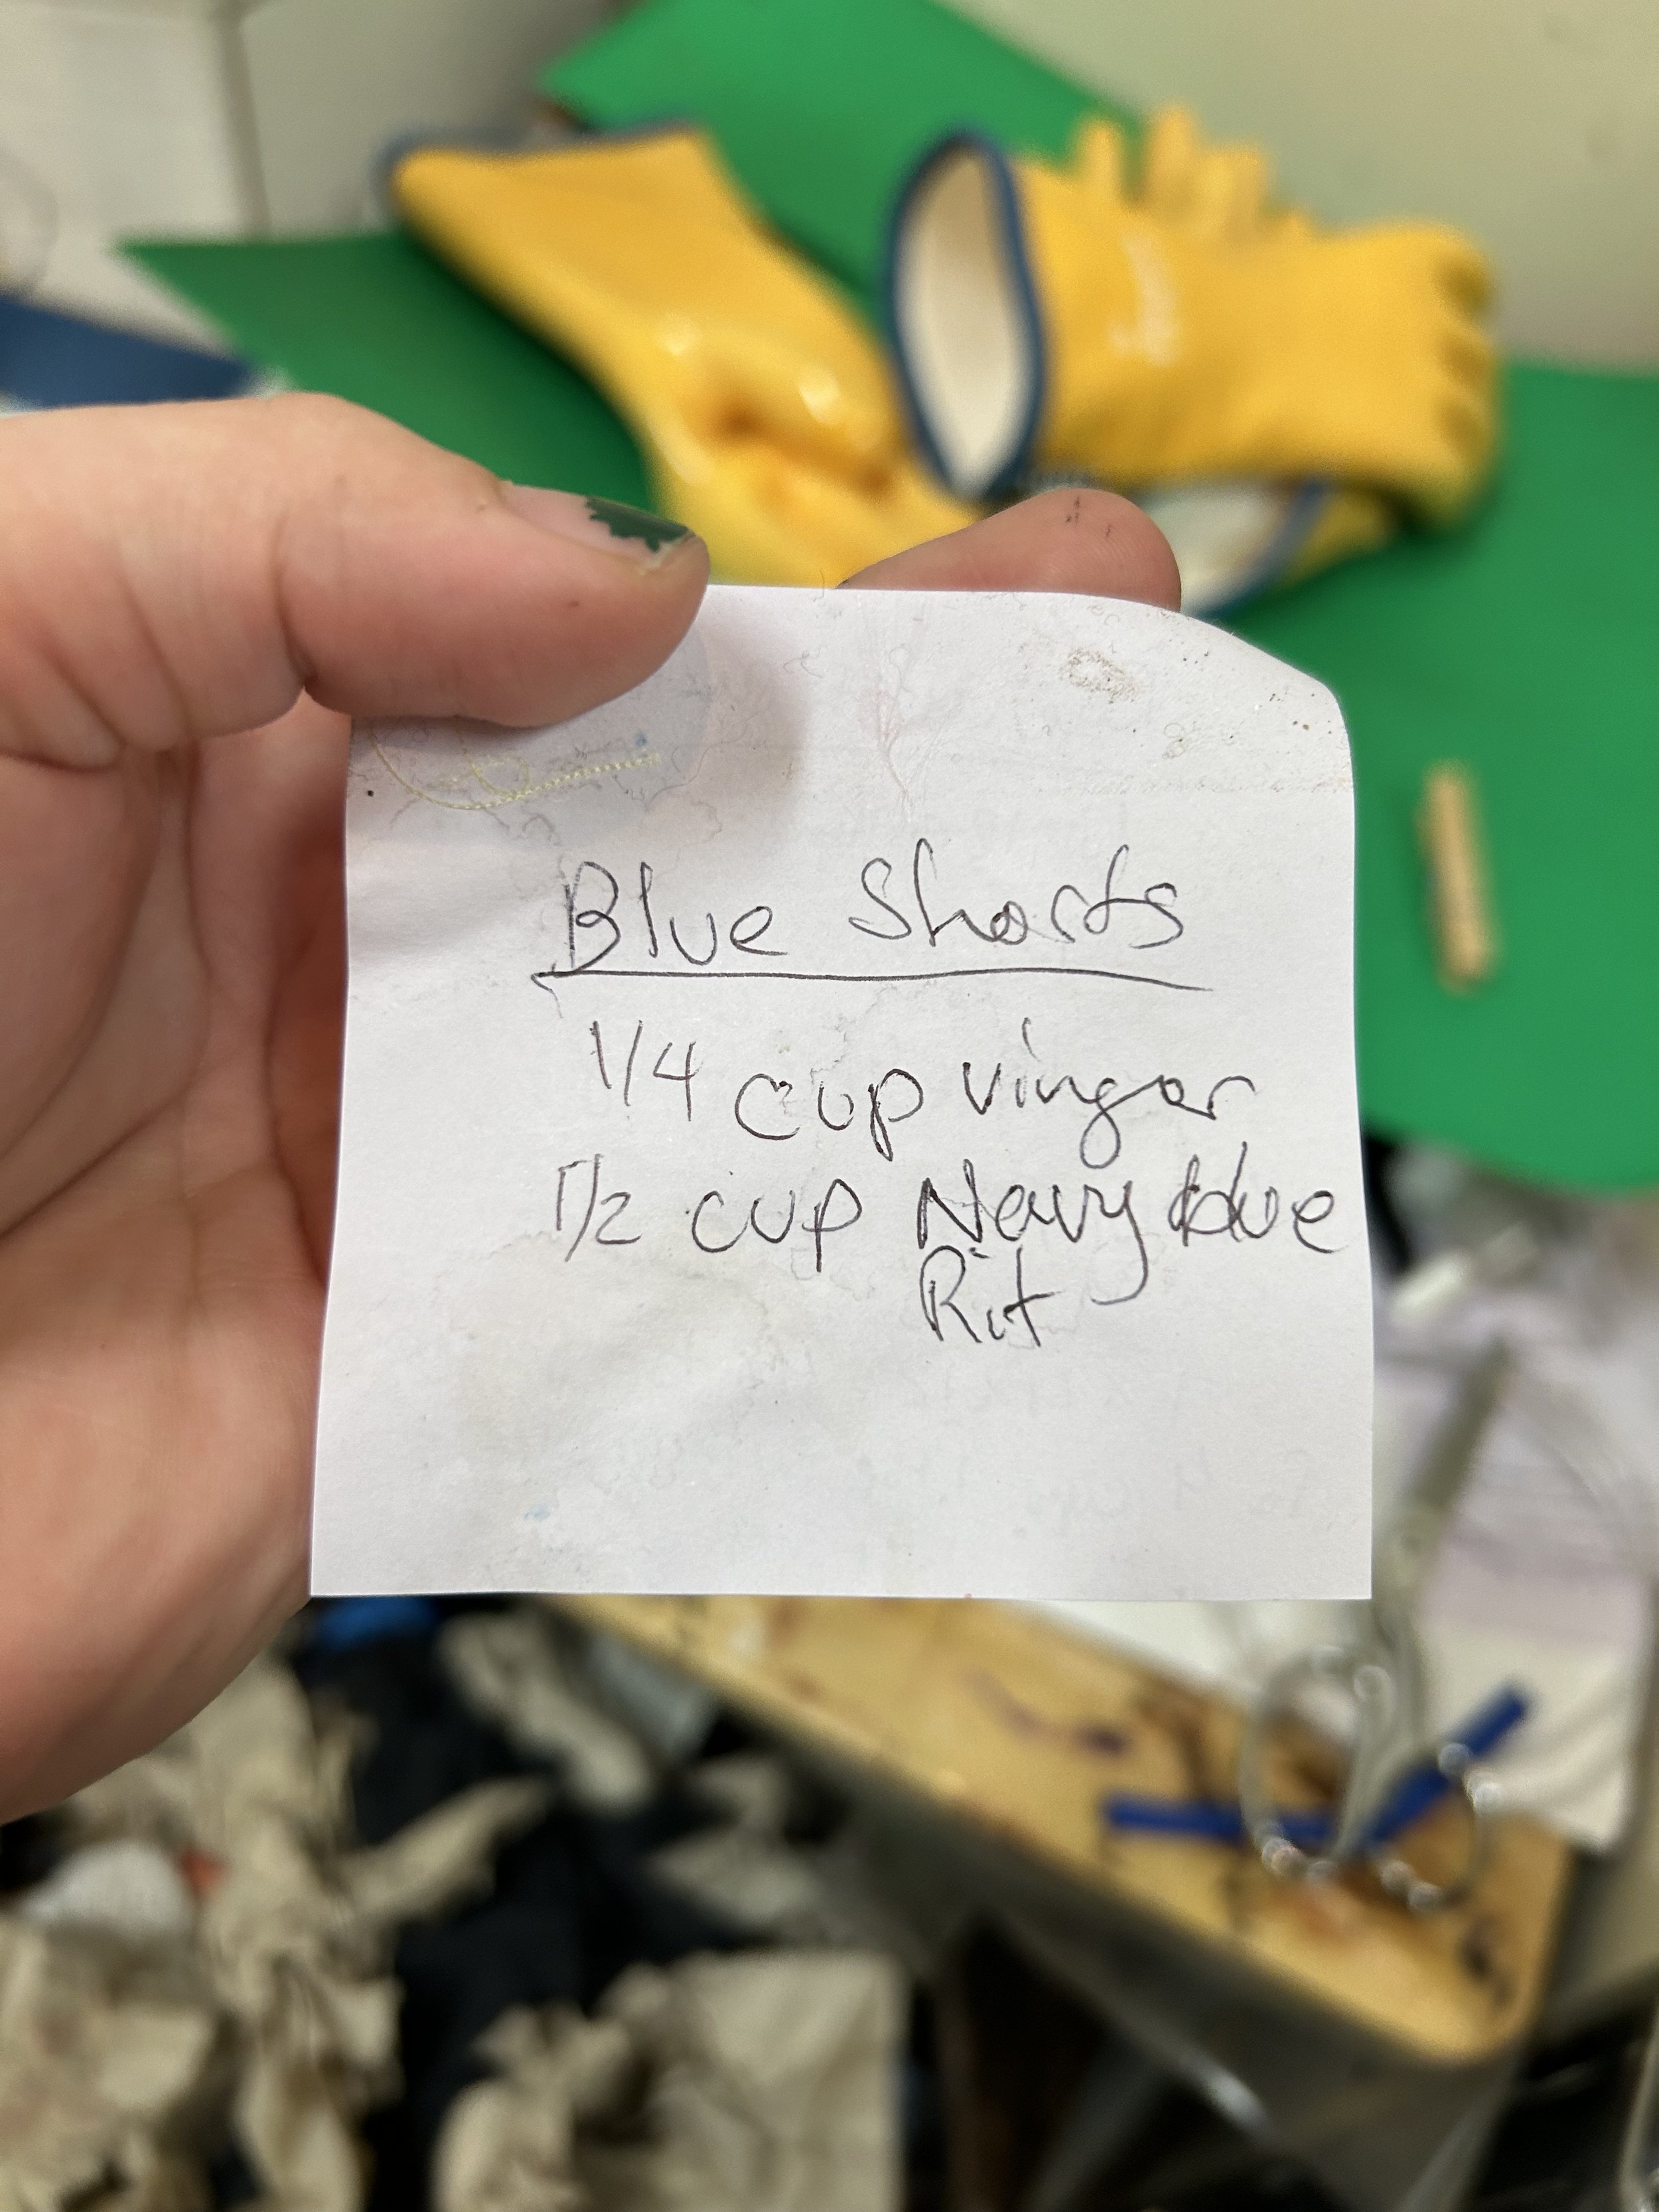 Blue Shorts
1/4 cup vingar
1/2 cup Navy blue
Rit